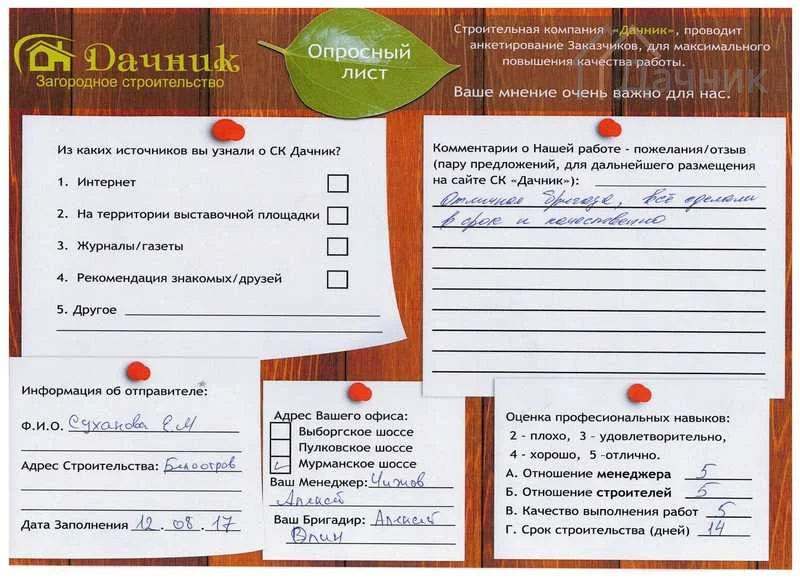 Дачник
Загородное строительство
Опросный
лист
Строительная компания «Дачник», проводит
анкетирование Заказчиков, для максимального
повышения качества работы.
Дачник
Ваше мнение очень важно для нас.
Из каких источников вы узнали о СК Дачник?
1. Интернет
2. На территории выставочной площадки
3. Журналы/газеты
4. Рекомендация знакомых/друзей
5. Другое
Комментарии о Нашей работе - пожелания/отзыв
(пару предложений, для дальнейшего размещения
на сайте СК «Дачник»):
Отличная бригада, всё сделали
в срок и качественно
Информация об отправителе:
Ф.И.О. Суханова Е.М
Адрес Строительства: Белоостров
Дата Заполнения 12.08.17
Адрес Вашего офиса:
Выборгское шоссе
Пулковское шоссе
Мурманское шоссе
Ваш Менеджер: Чижов
Алексей
Ваш Бригадир: Алексей
Оценка профессиональных навыков:
2 - плохо, 3 - удовлетворительно,
4 - хорошо, 5 -отлично.
А. Отношение менеджера 5
Б. Отношение строителей 5
В. Качество выполнения работ 5
Г. Срок строительства (дней) 14